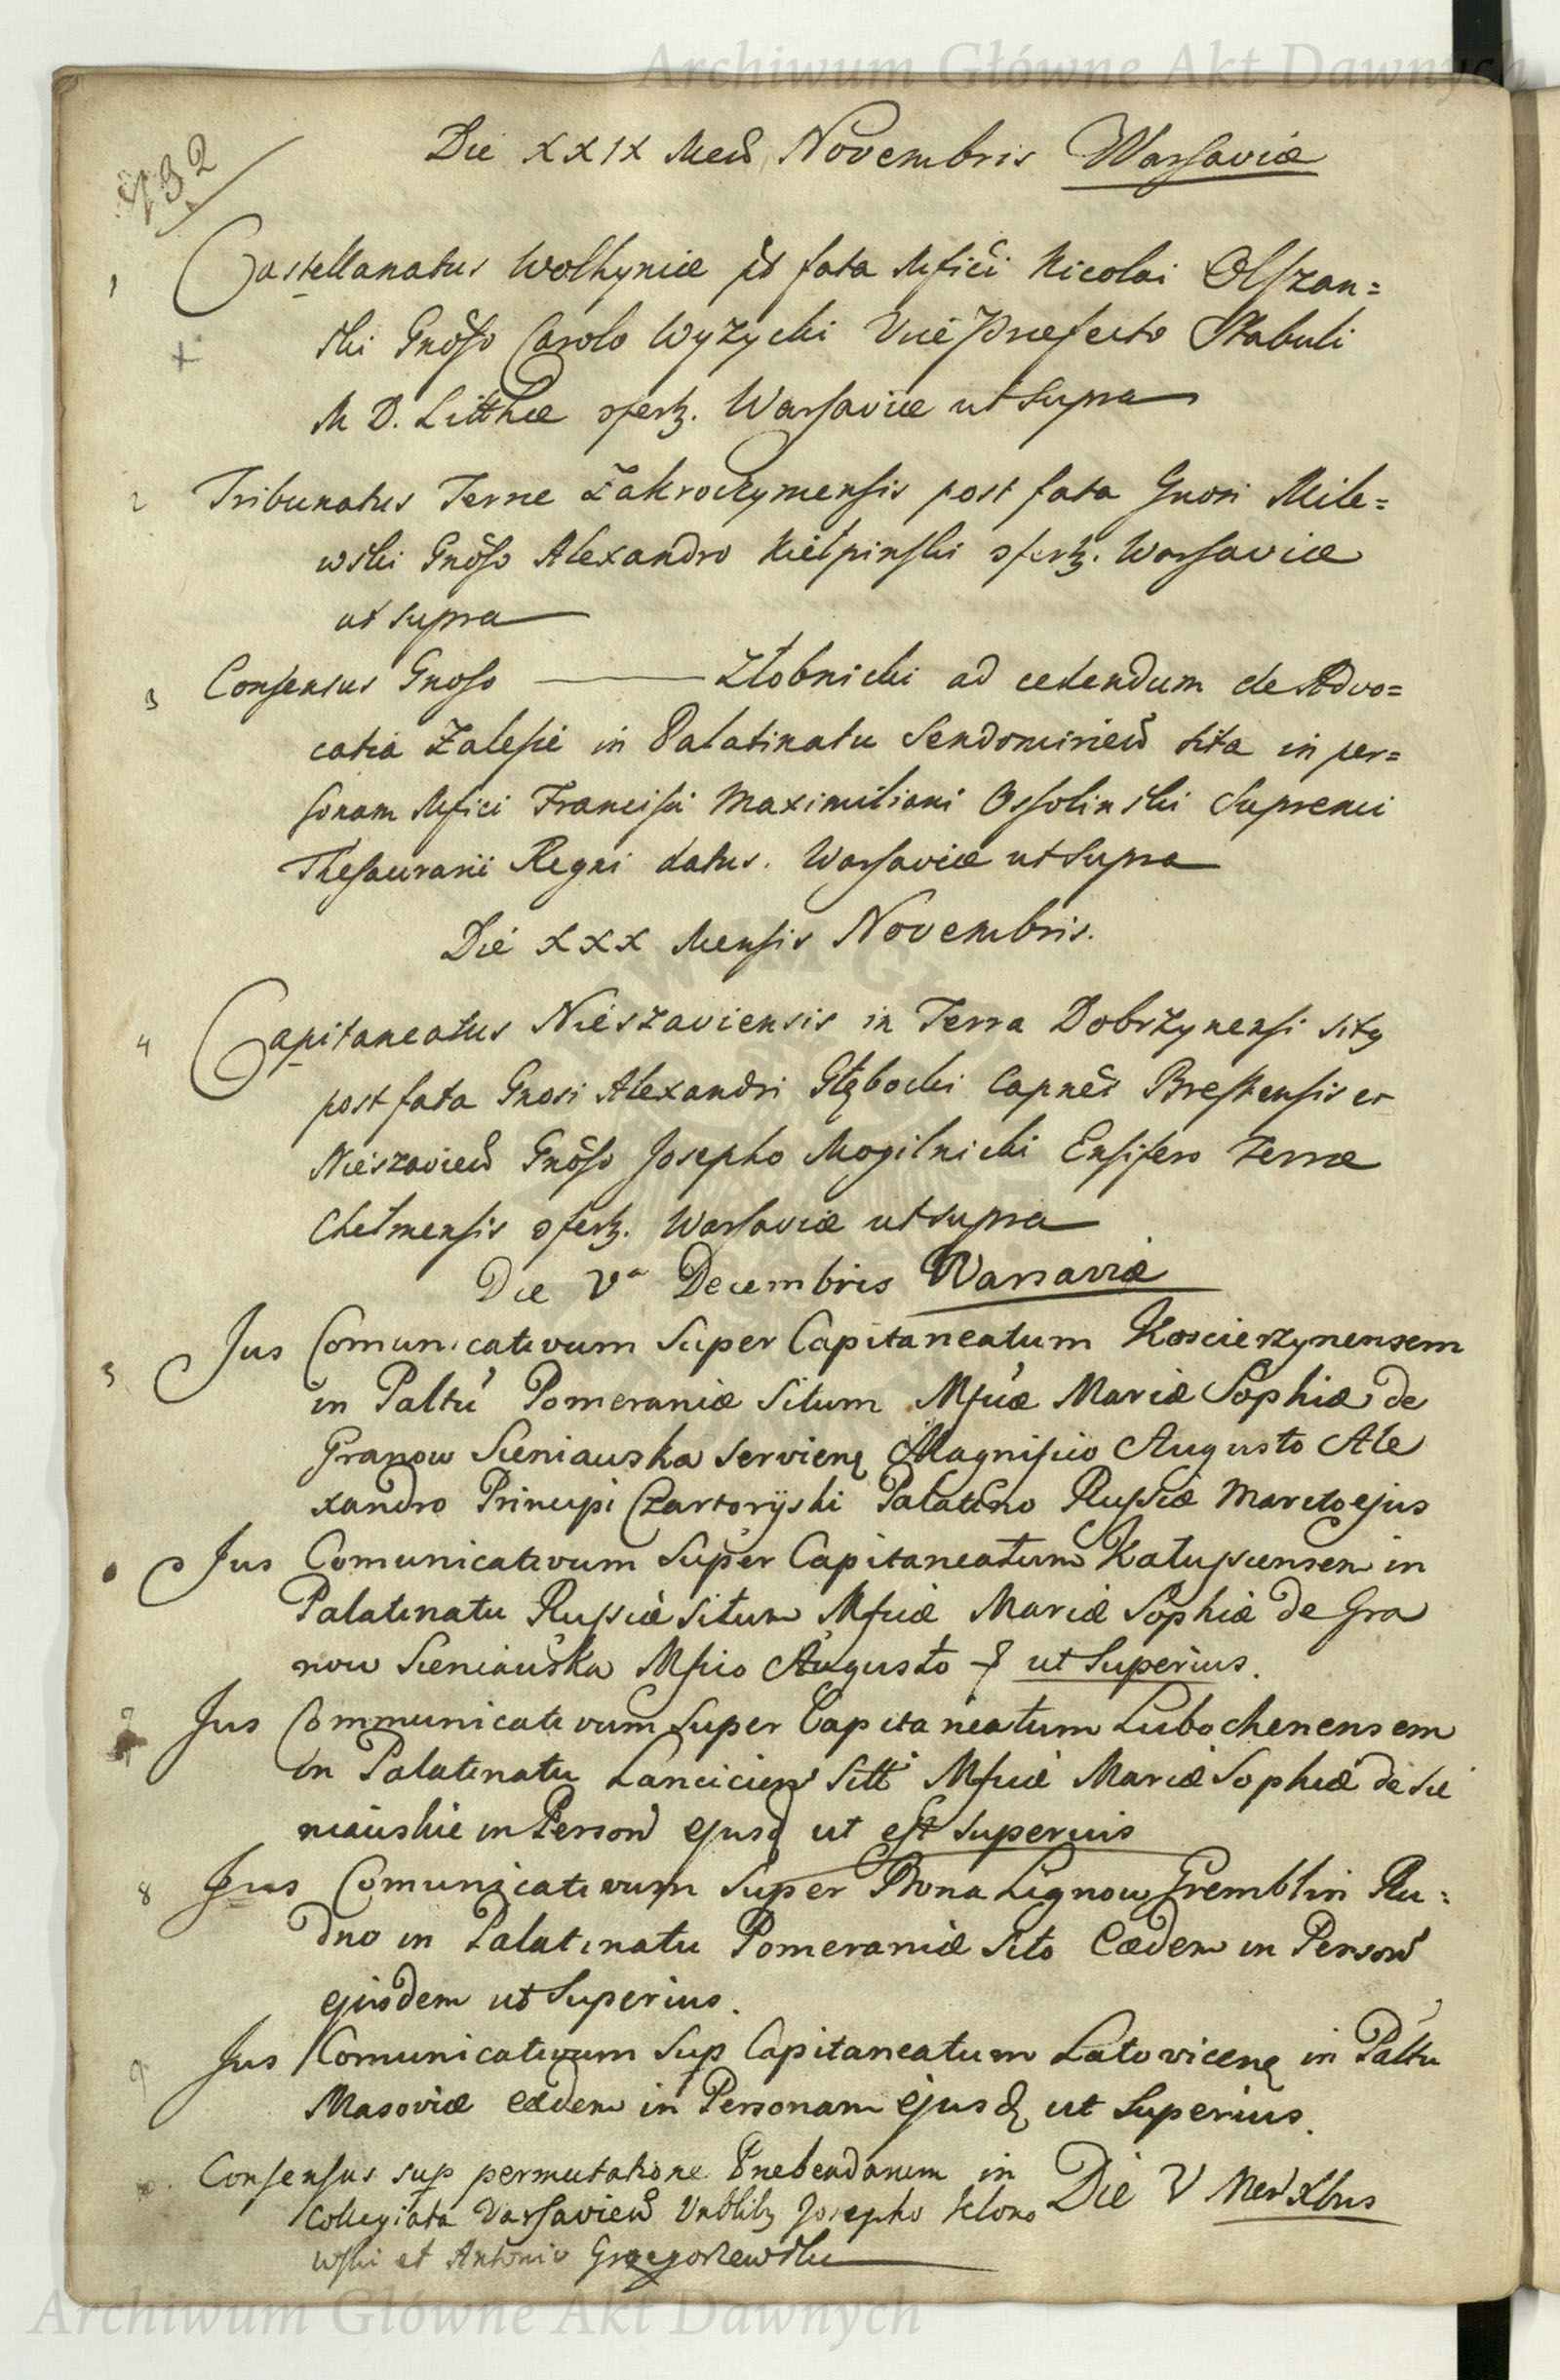 Archiwum Główne Akt Dawnych
Die XXIX Mens̃ Novembris Warsaviæ
432
1 Castellanatus Wolhyniæ pt fata Mfici Nicolai Olszan=
x ski Gnõso Carolo Wyżycki Vice Præfecto Stabuli
M D. Litthæ Warsaviæ ut supra
2 Tribunatus Terræ Zakroczymensis post fata Gnosi Mile=
wski Gnõso Alexandro Kiełpinski Warsaviæ
ut supra
3 Consensus Gnoso ——— Złobnicki ad cedendum de Advo=
catia Zalesie in Palatinatu Sendomirien̄ sita in per=
sonam Mfici Francisci Maximiliani Ossolinski Supremi
Thesaurarii Regni datus. Warsaviæ ut supra
Die XXX Mensis Novembris.
4 Capitaneatus Nieszaviensis in Terra Dobrzynensi sitg
post fata Gnosi Alexandri Głębocki Capnei Brestensis et
Nieszavien̄ Gnõso Josepho Mogilnicki Ensifero Terræ
Chełmensis Warsaviæ ut supra
Die Vᵃ Decembris Warsaviæ
5 Jus Comunicativum Super Capitaneatum Koscierzynensem
in Paltu Pomeraniæ Situm Mfcæ Mariæ Sophiæ de
Granow Sieniauska Magnifico Augusto Ale
xandro Principi Czartoryski Palatino Russiæ Marito ejus
6 Jus Comunicativum Super Capitaneatum Kałuscensem in
Palatinatu Russiæ Situm Mfcæ Mariæ Sophiæ de Gra
now Sieniauska Mfcio Augusto ut Superius.
7 Jus Communicativum Super Capitaneatum Lubochenensem
in Palatinatu Lancicien̄ Mfcæ Mariæ Sophiæ de Sie
niauskie in Person̄ ejusd ut est superius
8 Jus Comunicativum Super Bona Lignow Gremblin Ru=
dno in Palatinatu Pomeraniæ Sito Eædem in Person̄
ejusdem ut Superius.
9 Jus Comunicativum Sup Capitaneatum Latovicenę in Paltu
Masoviæ eædem in Personam ejusd ut Superius.
10. Consensus sup permutatione Præbendarum in Die V Men̄ Xbris
Collegiata Varsavien̄ Josepho
wski et Antonio Grzegorzewski
Archiwum Główne Akt Dawnych